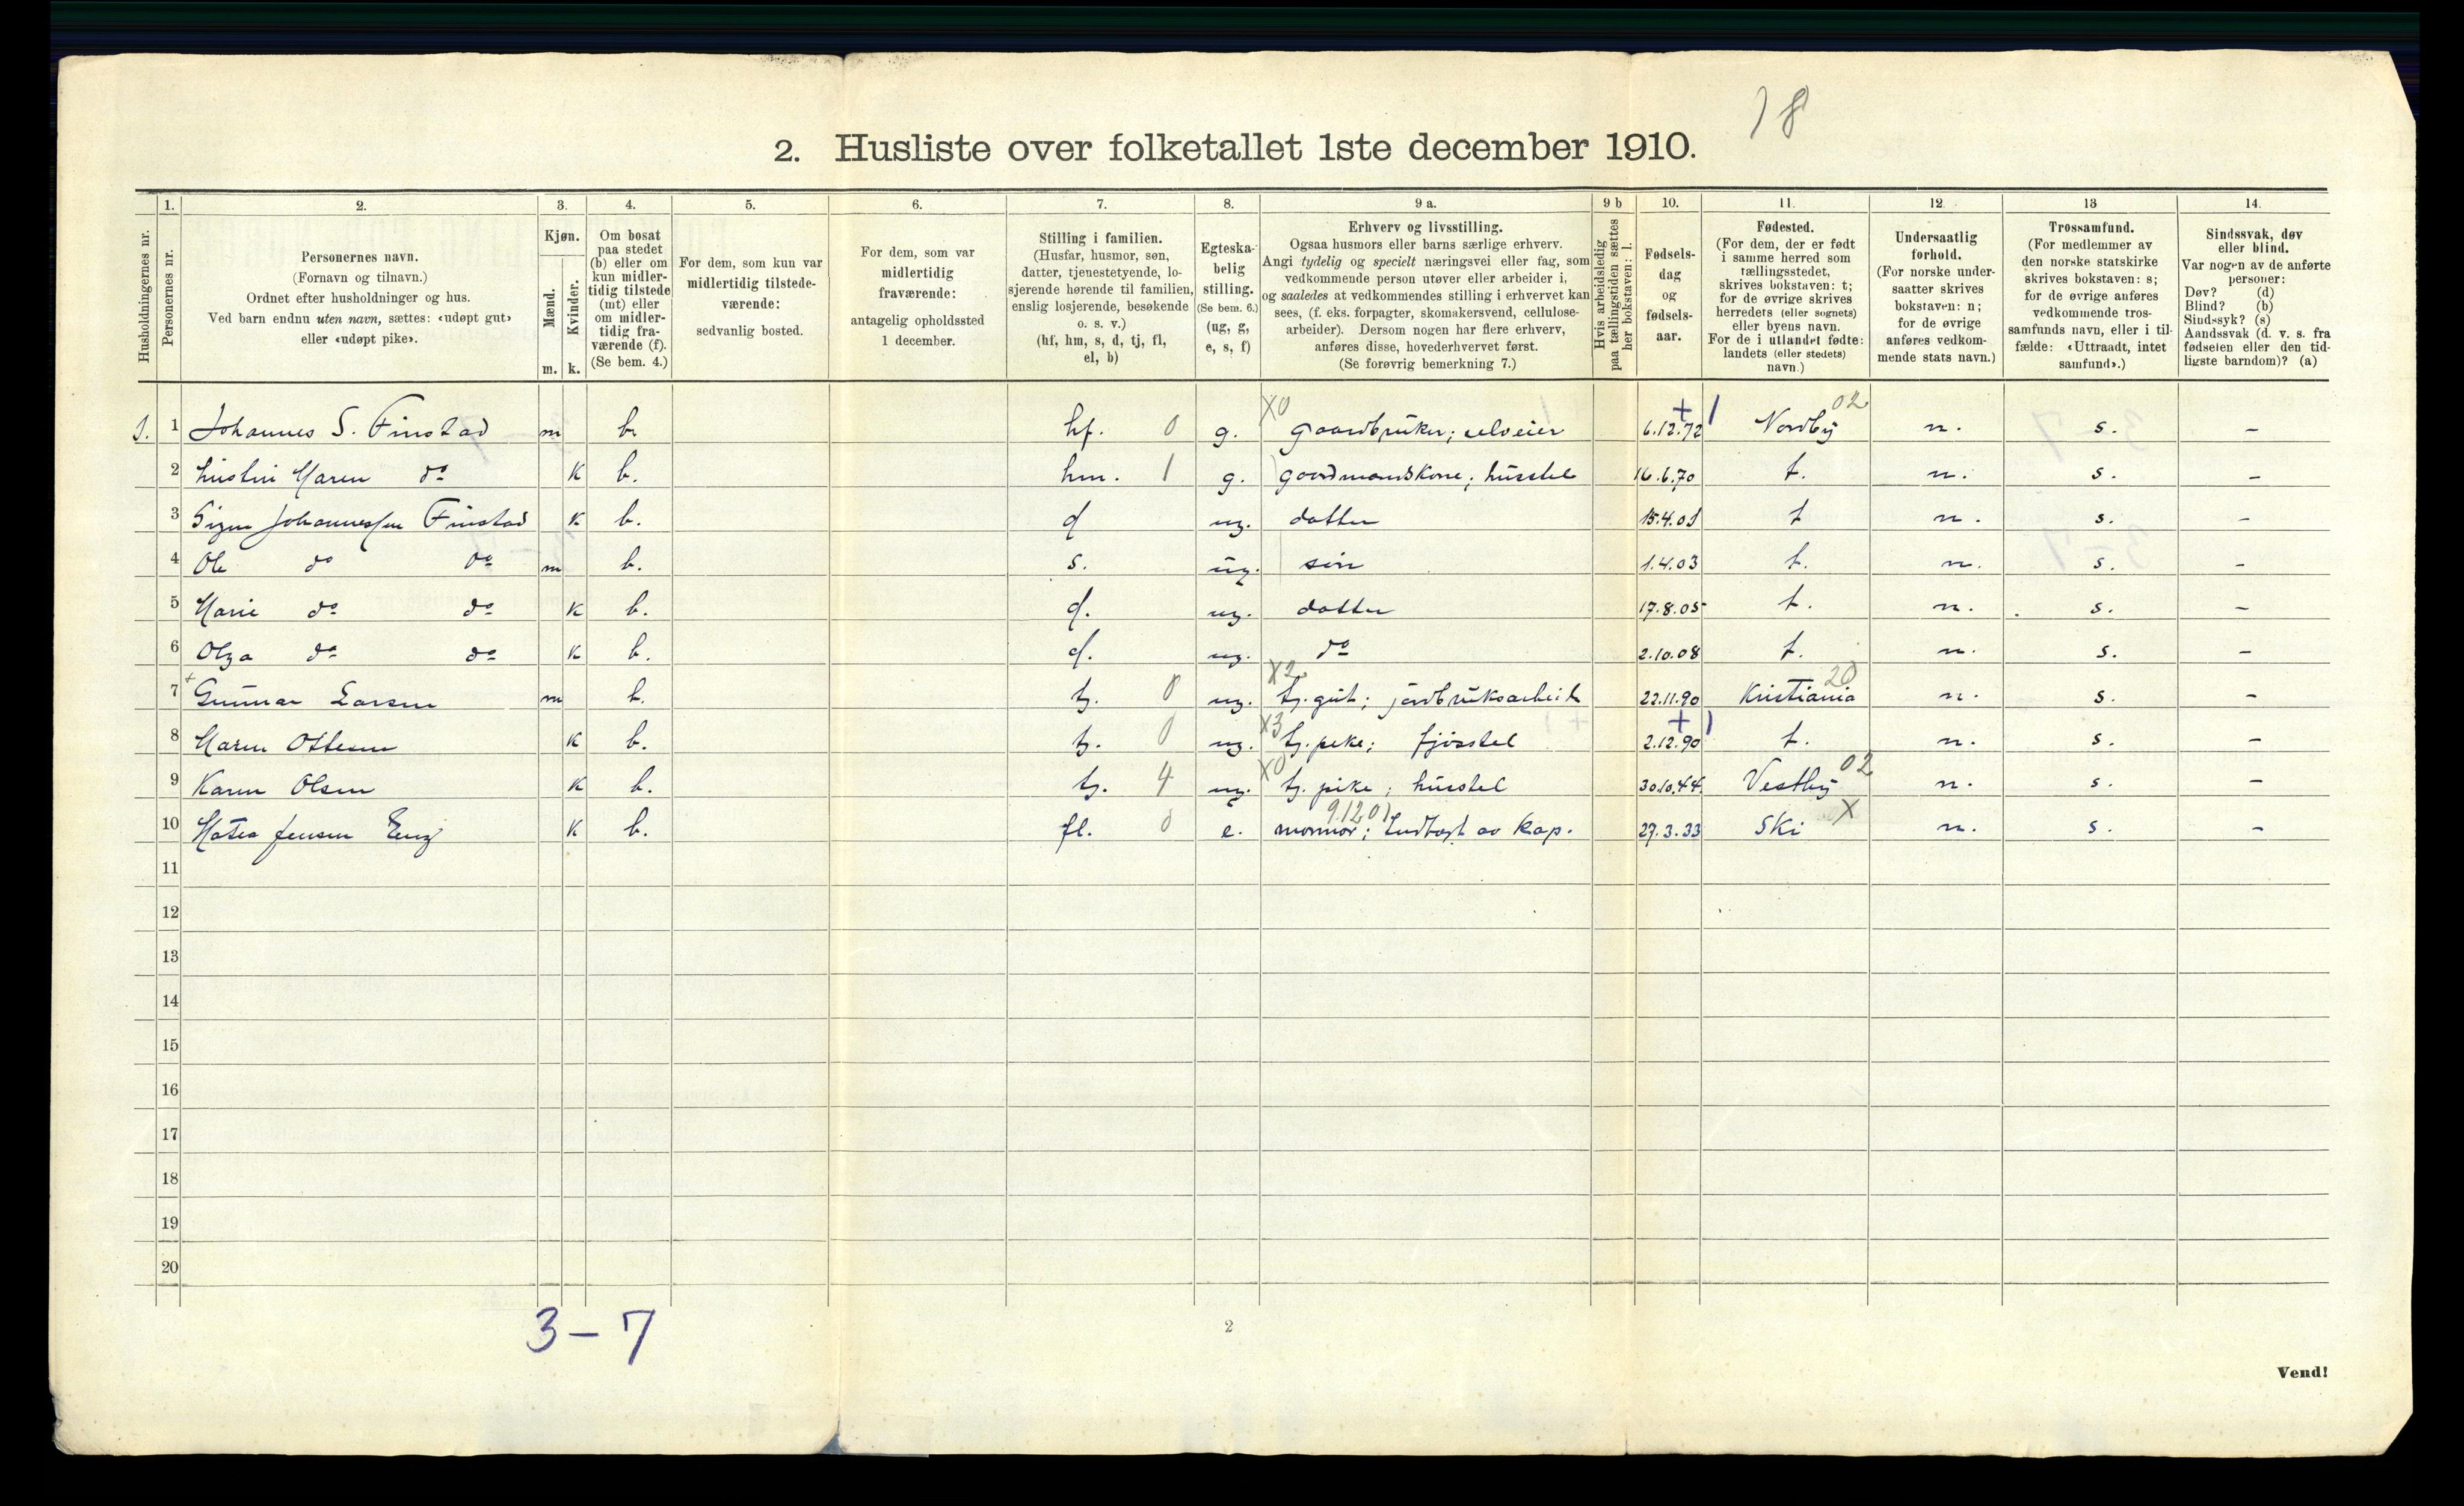 18
2. Husliste over folketallet 1ste december 1910.
Husholdningernes nr.
1.
Personernes nr.
2.
Personernes navn.
(Fornavn og tilnavn.)
Ordnet efter husholdninger og hus.
Ved barn endnu uten navn, sættes: «udøpt gut»
eller «udøpt pike».
3.
Kjøn.
Mænd.
Kvinder.
m. k.
4.
Om bosat
paa stedet
(b) eller om
kun midler-
tidig tilstede
(mt) eller
om midler-
tidig fra-
værende (f).
(Se bem. 4.)
5.
For dem, som kun var
midlertidig tilstede-
værende:
sedvanlig bosted.
6.
For dem, som var
midlertidig
fraværende:
antagelig opholdssted
1 december.
7.
Stilling i familien.
(Husfar, husmor, søn,
datter, tjenestetyende, lo-
sjerende hørende til familien,
enslig losjerende, besøkende
o. s. v.)
(hf, hm, s, d, tj, fl,
el, b)
8.
Egteska-
belig
stilling.
(Se bem. 6.)
(ug, g,
e, s, f)
9 a.
Erhverv og livsstilling.
Ogsaa husmors eller barns særlige erhverv.
Angi tydelig og specielt næringsvei eller fag, som
vedkommende person utøver eller arbeider i,
og saaledes at vedkommendes stilling i erhvervet kan
sees, (f. eks. forpagter, skomakersvend, cellulose-
arbeider). Dersom nogen har flere erhverv,
anføres disse, hovederhvervet først.
(Se forøvrig bemerkning 7.)
9 b
Hvis arbeidsledig
paa tællingstiden sættes
her bokstaven: l.
10.
Fødsels-
dag
og
fødsels-
aar.
11.
Fødested.
(For dem, der er født
i samme herred som
tællingsstedet,
skrives bokstaven: t;
for de øvrige skrives
herredets (eller sognets)
eller byens navn.
For de i utlandet fødte:
landets (eller stedets)
navn.)
12
Undersaatlig
forhold.
(For norske under-
saatter skrives
bokstaven: n;
for de øvrige
anføres vedkom-
mende stats navn.)
13
Trossamfund.
(For medlemmer av
den norske statskirke
skrives bokstaven: s;
for de øvrige anføres
vedkommende tros-
samfunds navn, eller i til-
fælde: «Uttraadt, intet
samfund».)
14.
Sindssvak, døv
eller blind.
Var nogen av de anførte
personer:
Døv? (d)
Blind? (b)
Sindssyk? (s)
Aandssvak (d. v. s. fra
fødselen eller den tid-
ligste barndom)? (a)
X0 + 1 02
1. 1 Johannes S. Finstad m b. hf. 0 g. gaardbruker; selveier 6.12.72 Nordby n. s. –
2 Maren do k b. hm. 1 g. gaardmandskone; husstel 16.6.70 t. n. s. –
3 Signe Johannessen Finstad k b. d ug. datter 15.4.01 t n. s. –
4 Ole do do m b. s. ug. søn 1.4.03 t. n. s. –
5 Marie do do k b. d. ug. datter 17.8.05 t. n. s. –
6 Olga do do k b. d. ug. do 2.10.08 t. n. s. –
X2 20
7 Gunnar Larsen m b. tj. 0 ug. tj. gut; jordbruksarbeide 22.11.90 Kristiania n. s. –
X3 + 1
8 Maren Ottesen k b. tj. 0 ug. tj. pike; fjøsstel 2.12.90 t. n. s. –
X0 02
9 Karen Olsen k b. tj. 4 ug. tj. pike; husstel 30.10.44. Vestby n. s. –
91201 X
10 Jensen k b. fl. 0 e. mormor; av kap. 27.3.33 Ski n. s. –
11
12
13
14
15
16
17
18
19
20
3 – 7
2
Vend!